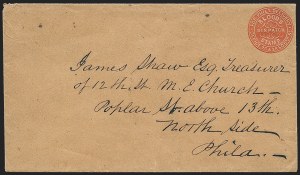 BLOOD'S
DESPATCH
STAMP
James Shaw Esq. Treasurer
of 12th. St. M. E. Church —
Poplar St. above 13th.
North Side
Phila. —